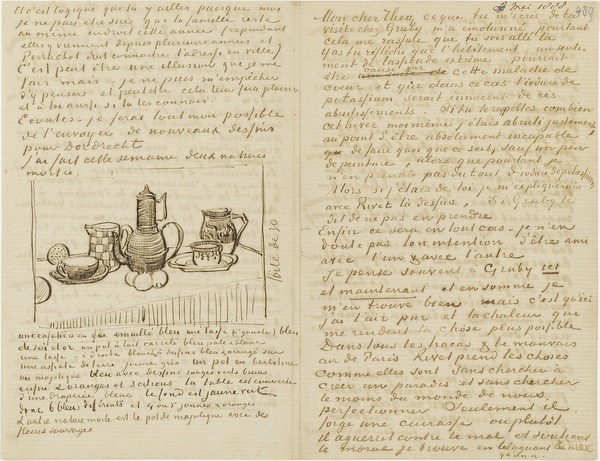 Et c'est logique que tu y ailles puisque nous
je ne puis être sûr que la famille reste
au même endroit cette année (cependant
elles y viennent depuis plusieurs années et
Perruchot doit connaitre l'adresse en ville)
C'est peut être une illusion que je me
fais mais je ne puis m'empêcher
d'y penser et peutetre cela leur fera plaisir
et à toi aussi si tu les connais.
Ecoutes – je ferai tout mon possible
de t'envoyer de nouveaux dessins
pour Dordrecht
J'ai fait cette semaine deux natures
mortes.
toile de 30
une cafetière en fer emaillé bleu une tasse (à gauche) bleu
de roi et or un pot à lait carrelé bleu pale & blanc
une tasse – à droite blanche à dessins bleus & orangés sur
une assiette de terre jaune gris un pot en barbotine
ou majolique bleu avec dessins rouges verts bruns
enfin 2 oranges et 3 citrons la table est couverte
d'une draperie bleue le fond est jaune vert
donc 6 bleus différents et 4 ou 5 jaunes & orangés
L'autre nature morte est le pot de majolique avec des
fleurs sauvages
Mai 1888 489
Mon cher Theo, ce que tu m'écris de ta
visite chez Gruby m'a chagriné pourtant
cela me rassure que tu sois allé là
As tu réfléchi que l'hébêtement – un senti-
ment de lassitude extrême – pourrait
être causé par cette maladie de
coeur et que dans ce cas l'iodure de
potassium serait innocent de ces
abrutissements. Dis toi te rappelles combien
cet hiver moi-même j'étais abruti justement
au point d'être absolument incapable
de faire quoi que ce soit, sauf un peu
de peinture, alors que pourtant je
n'en prenais pas du tout d'iodure de potassium
Alors si j'étais de toi je m'expliquerais
avec Rivet là dessus, si Gruby te
dit de ne pas en prendre
Enfin ce sera en tout cas – je n'en
doute pas ton intention d'être ami
avec l'un & avec l'autre
Je pense souvent à Gruby ici
et maintenant et en somme je
m'en trouve bien mais c'est qu'ici
j'ai l'air pur et la chaleur qui
me rendent la chose plus possible
Dans tous les tracas & le mauvais
air de Paris Rivet prend les choses
comme elles sont sans chercher à
créer un paradis et sans chercher
le moins du monde de nous
perfectionner. Seulement il
forge une cuirasse ou plutôt
il aguerrit contre le mal et soutient
le moral je trouve en blaguant le mal
qu'on a.